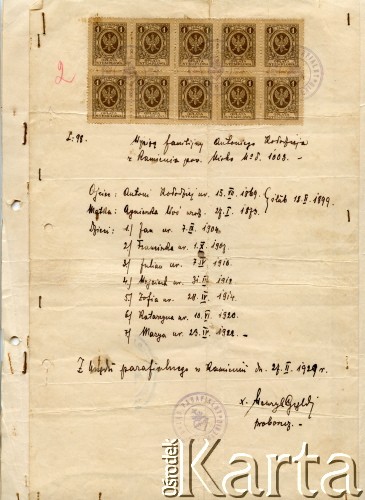 2
L: 98.
Wypis familijny Antoniego Kołodzieja
z Kamienia pow. Nisko № d. 1003.
Ojciec: Antoni Kołodziej ur. 15. 1869. ślub 18. II. 1899.
Matka: Agnieszka ur. 27. I. 1873.
Dzieci: 1/ Jan ur. 7. II. 1904.
2/ Franciszka ur. 1. X. 1907.
3/ Julian ur. 7. IV. 1910.
4/ Wojciech ur. 31. 1912.
5/ Zofia ur. 28. IV. 1914.
6/ Katarzyna ur. 10. VI. 1920.
7/ Marya ur. 23. IV. 1922. –
Z Urzędu parafialnego w Kamieniu dn. 27. II. 1929 r.
x. Henryk
proboszcz. –
Ośrodek
Karta